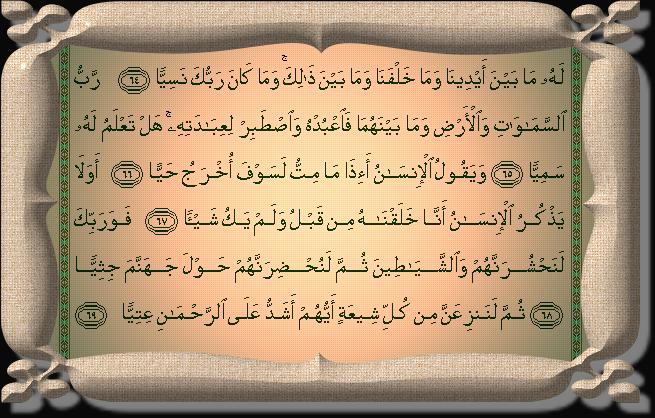 لَهُۥ مَا بَيْنَ أَيْدِينَا وَمَا خَلْفَنَا وَمَا بَيْنَ ذَٰلِكَ ۚ وَمَا كَانَ رَبُّكَ نَسِيًّا ٦٤ رَّبُّ
ٱلسَّمَٰوَٰتِ وَٱلْأَرْضِ وَمَا بَيْنَهُمَا فَٱعْبُدْهُ وَٱصْطَبِرْ لِعِبَٰدَتِهِۦ ۚ هَلْ تَعْلَمُ لَهُۥ
سَمِيًّا ٦٥ وَيَقُولُ ٱلْإِنسَٰنُ أَءِذَا مَا مِتُّ لَسَوْفَ أُخْرَجُ حَيًّا ٦٦ أَوَلَا
يَذْكُرُ ٱلْإِنسَٰنُ أَنَّا خَلَقْنَٰهُ مِن قَبْلُ وَلَمْ يَكُ شَيْـًٔا ٦٧ فَوَرَبِّكَ
لَنَحْشُرَنَّهُمْ وَٱلشَّيَٰطِينَ ثُمَّ لَنُحْضِرَنَّهُمْ حَوْلَ جَهَنَّمَ جِثِيًّا
٦٨ ثُمَّ لَنَنزِعَنَّ مِن كُلِّ شِيعَةٍ أَيُّهُمْ أَشَدُّ عَلَى ٱلرَّحْمَٰنِ عِتِيًّا ٦٩